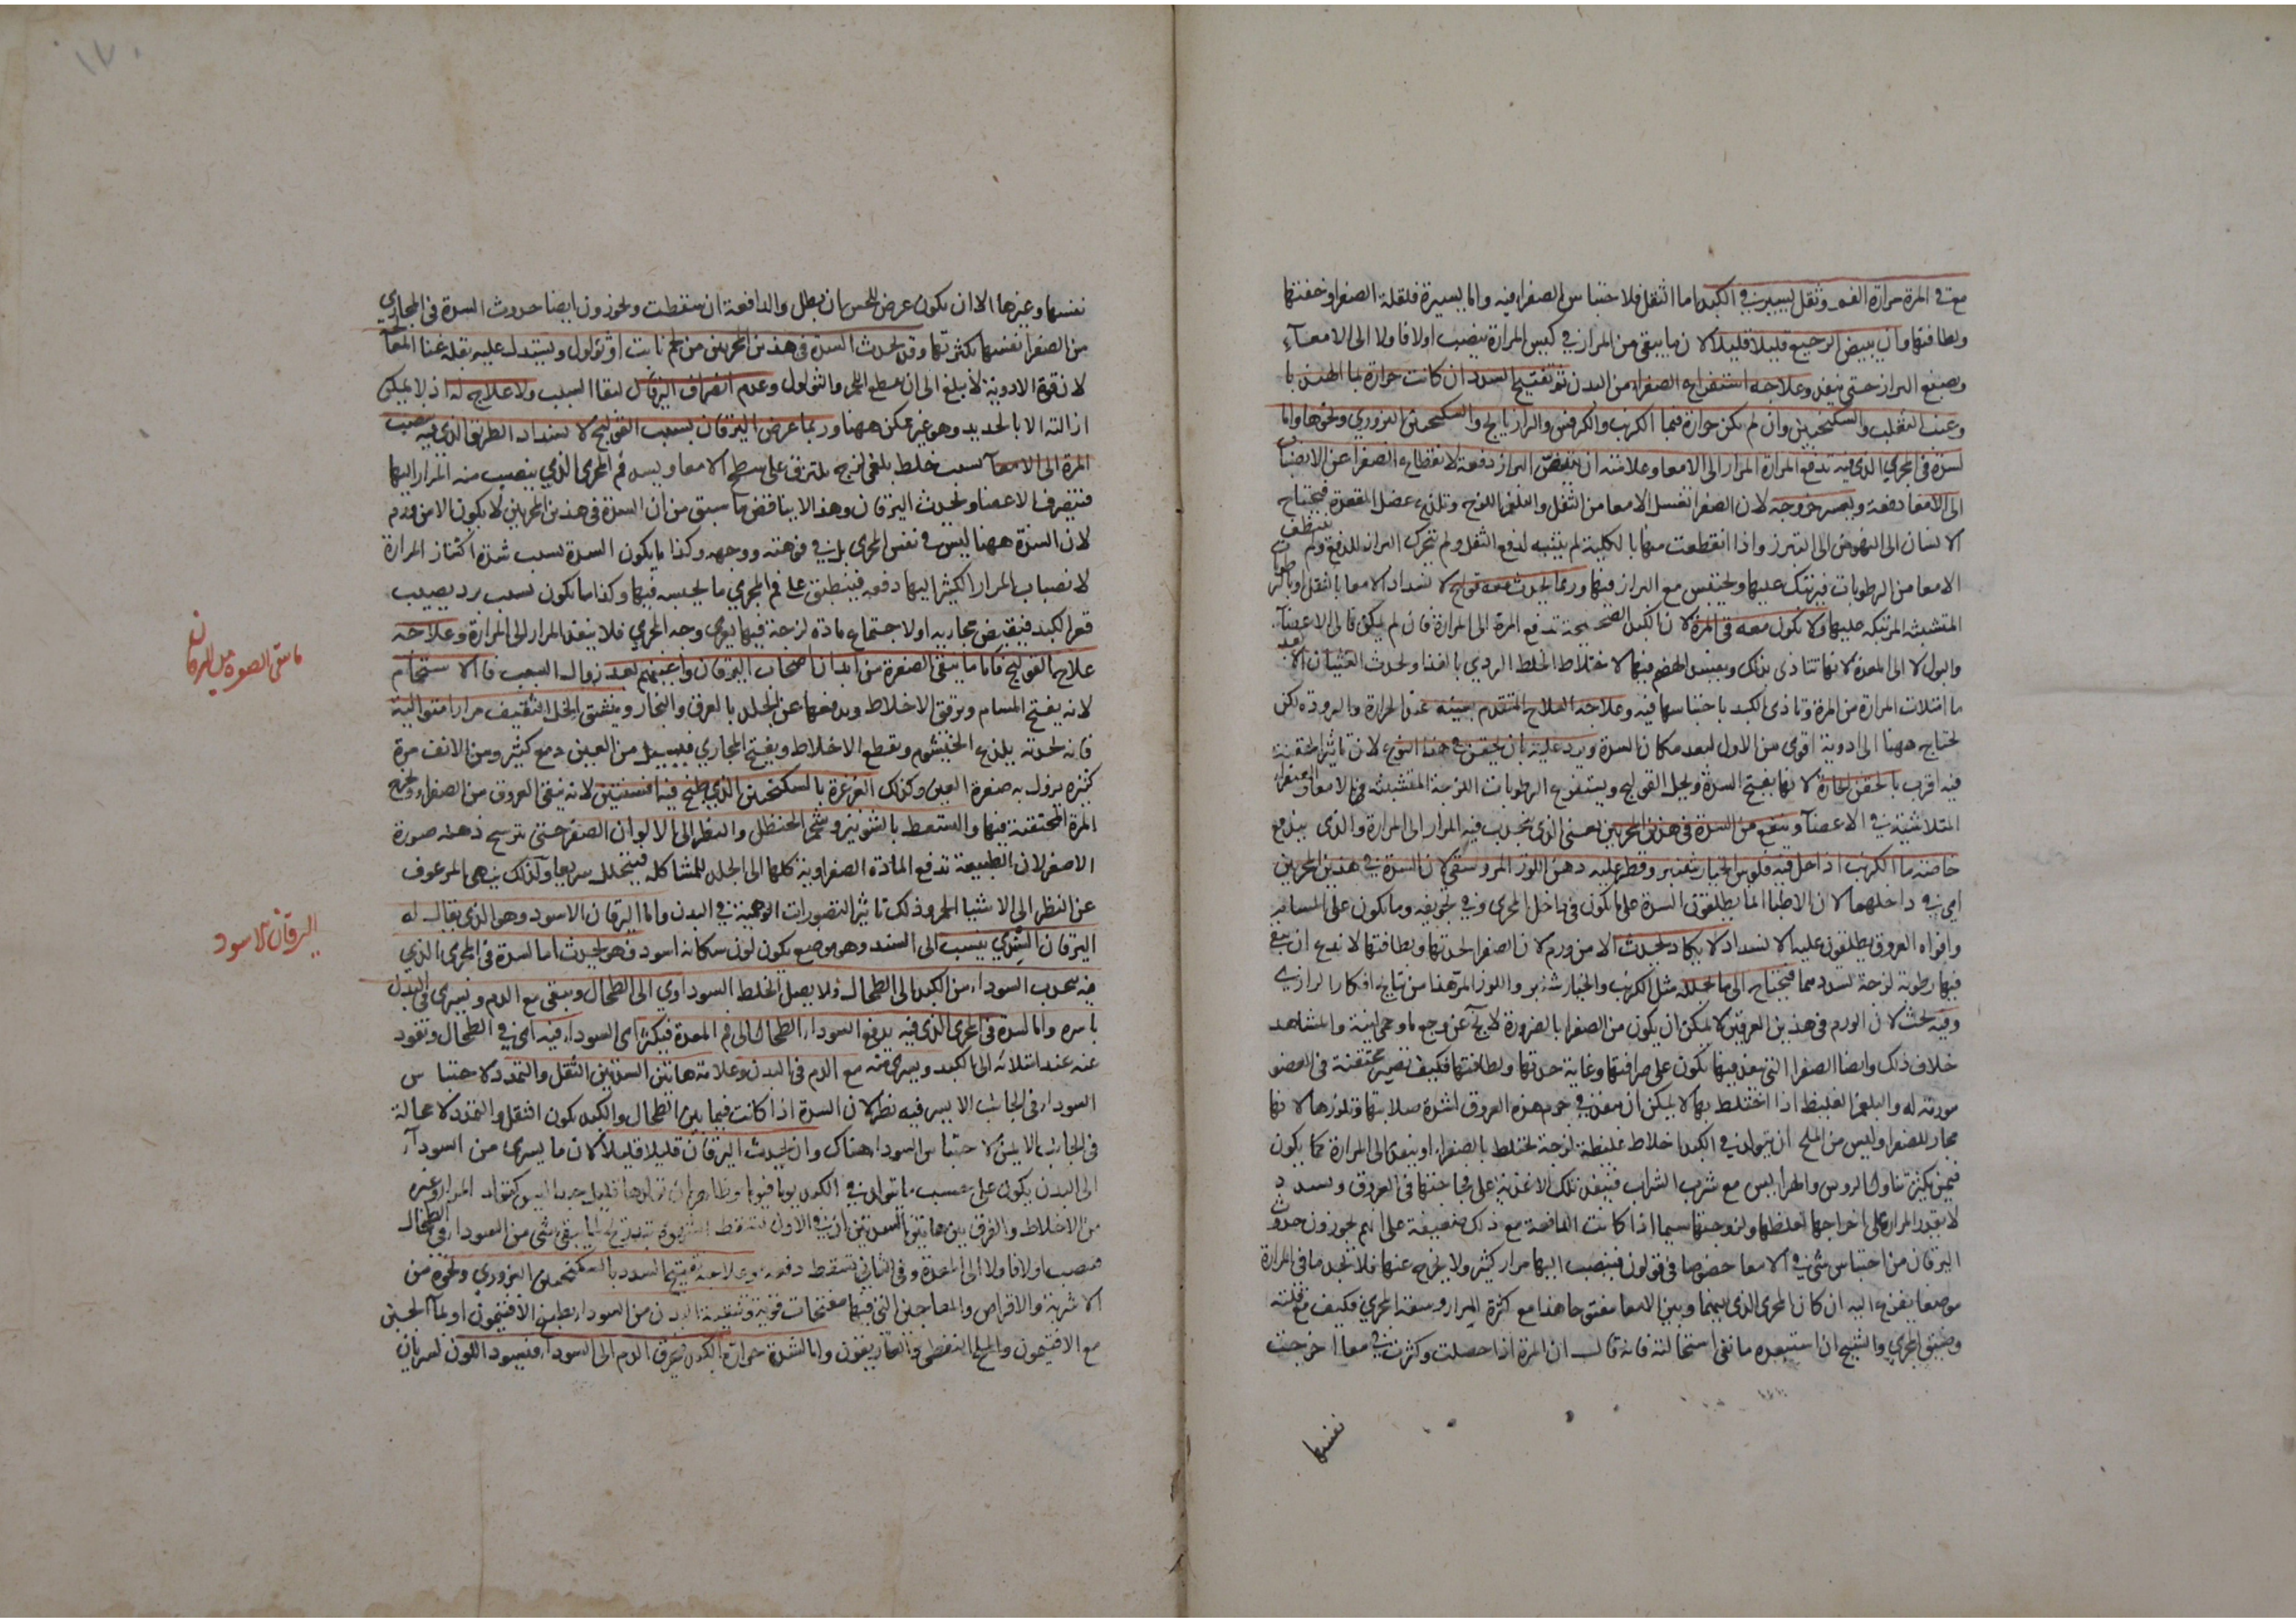 معه في المرة مرارة الفم وثقل يسير في الكبد اما الثقل فلاحتباس الصفراء فيه واما يسيرة فلقلة الصفراء وخفتها
ولطافتها وان يبيض الرجيع قليلا قليلا لان ما يبقى من المرار في كيس المرارة ينصب اولا فاولا الى الامعاء
ويصبغ البراز حتى ينفد وعلاجه استفراغ الصفراء من البدن ثم تفتيح السدد ان كانت حرارة بماء الهندبا
وعنب الثعلب والسكنجبين وان لم تكن حرارة فبماء الكرفس والرازيانج والسكنجبين البزوري ونحوها واما
لسدة في المجرى الذي فيه تدفع المرارة المرار الى الامعا وعلامته ان يبيض البراز دفعة لانقطاع الصفرا عن الانصباب
الى الامعا دفعة ويعسر خروجه لان الصفرا تغسل الامعا من الثفل والبلغم اللزج وتلذع عضل المقعدة فيحتاج
الانسان الى النهوض الى التبرز واذا انقطعت عنها بالكلية لم ينتبه لدفع الثفل ولم يتحرك البراز للدفع ولم ينظف
الامعا من الرطوبات فيرتبك عليها ويحتبس مع البراز فيها وربما يحدث معه قولنج لانسداد الامعا بالثفل وبالرطوبات
المتشبثة المرتبكة عليها ولا يكون معه في المرة لان الكبد الصحيحة تدفع المرة الى المرارة فان لم يمكن فالى الاعضاء
والبول لا الى المعدة لانها تتاذى بذلك ويفسد الهضم فيها لاختلاط الخلط الردي بالغذا ويحدث الغثيان الا بعد
ما امتلات المرارة من المرة وتاذى الكبد باحتباسها فيه وعلاجه العلاج المتقدم بعينه عند الحرارة والبرودة لكن
يحتاج ههنا الى ادوية اقوى من الاول لبعد مكان السدة ويزيد عليه بان يحقن في هذا النوع لان تاثير الحقنة
فيه اقرب بالحقن الحارة لانها يفتح السدة ويحل القولنج ويستفرغ الرطوبات اللزجة المتشبثة في الامعا والصفراء
المتلاشية في الاعضاء وينفع من السدة في هذين المجريين يعني الذي يجذب فيه المرار الى المرارة والذي يدفع
خاصة ماء الكرنب اذا حل فيه فلوس الخيار شنبر وقطر عليه دهن اللوز المر وسقي لان السدة في هذين المجريين
اي في داخلهما لان الاطبا انما يطلقون السدة على ما يكون في داخل المجرى وفي تجويفه وما يكون على المسام
وافواه العروق يطلقون عليه الانسداد لا يكاد يحدث الا من ورم لان الصفرا لحدتها ولطافتها لا تدع ان يبقى
فيها رطوبة لزجة تسددهما فيحتاج الى ما يحلله مثل الكرنب والخيار شنبر واللوز المر هذا من نتايج افكار الرازي
وفيه بحث لان الورم في هذين العرقين لا يمكن ان يكون من الصفرا بالضرورة عن وجع ما وحمى لينة والمشاهد
خلاف ذلك وايضا الصفرا التي تنفذ فيها يكون على صرافتها وغاية حدتها ولطافتها فكيف تصير محتقنة في العضو
مورثة له والبلغم الغليظ اذا اختلط بها لا يمكن ان ينفذ في جرم هذه العروق لشدة صلابتها وتلززها لانها
مجار للصفرا وليس من الملح ان يتولد في الكبد اخلاط غليظة لزجة تختلط بالصفراء او ينفذ الى المرارة كما يكون
فيمن يكثر تناول الروس والهرايس مع شرب الشراب فتنفذ تلك الاغذية على فجاجتها في العروق ويسدد
لا يقدر المرارة على اخراجها لغلظها ولزوجتها سيما اذا كانت الدافعة مع ذلك ضعيفة على انهم يجوزون حدوث
اليرقان من احتباس شي في الامعا خصوصا في قولون فينصب اليها مرار كثير ولا يخرج عنها فلا تجد ما في المرارة
موضعا يفرغ اليه ان كان المجرى الذي بينها وبين الامعا مفتوحا هذا مع كثرة المرار وسعة المجرى فكيف مع قلته
وضيق المجرى والشيخ ان استبعده ما نفى استحالته فانه قال ان المرة اذا حصلت وكثرت في معا اخرجت
نفسها
١٧٠
نفسها وغيرها الا ان يكون عرض للحس ان يبطل والدافعة ان سقطت ويجوزون ايضا حدوث السدة في المجاري
من الصفرا نفسها بكثرتها وقد يحدث السدة في هذين المجريين من لحم نابت او ثؤلول ويستدل عليه بقلة غنا المعالجات
لان قوة الادوية لا يبلغ الى ان يقطع اللحم والثولول وعدم انصراف اليرقان لبقا السبب ولا علاج له اذ لا يمكن
ازالته الا بالحديد وهو غير ممكن ههنا وربما عرض اليرقان بسبب القولنج لانسداد الطريق الذي فيه ينصب
المرة الى الامعاء بسبب خلط بلغمي لزج يلتزق على سطح الامعا ويسد فم المجرى الذي ينصب منه المرار اليها
فينصرف الى الاعضا ويحدث اليرقان وهذا لا يناقض ما سبق من ان السدة في هذين المجريين لا يكون الا من ورم
لان السدة ههنا ليس في نفس المجرى بل في فوهته ووجهه وكذا ما يكون السدة بسبب شدة اكتناز المرارة
لانصباب المرار الكثير اليها دفعة فينطبق على فم المجرى ما يحبسه فيها وكذا ما يكون بسبب برد يصيب
قعر الكبد فيقبض مجاريه او لاجتماع مادة لزجة فيها يعمي وجه المجرى فلا ينفذ المرار الى المرارة وعلاجه
علاج القولنج فاما ما يبقى الصفرة من ابدان اصحاب اليرقان واعينهم بعد زوال السبب فالاستحمام
لانه يفتح المسام ويرقق الاخلاط ويدفعها عن الجلد بالعرق والبخار وينشق الخل الثقيف مرارا متوالية
فانه لحدته يلذع الخيشوم ويقطع الاخلاط ويفتح المجاري فيسيل من العين دمع كثير ومن الانف مرة
كثيرة يزول به صفرة العين وكذلك الغرغرة بالسكنجبين الذي طبخ فيه افسنتين لانه ينقي العروق من الصفراء ويخرج
المرة المحتقنة فيها والسعط بالشونيز وشحم الحنظل والنظر الى الالوان الصفر حتى يترسخ ذهنه صورة
الاصفر لان الطبيعة تدفع المادة الصفراوية كلها الى الجلد للمشاكلة فيتحلل سريعا ولذلك ينهى المرعوف
عن النظر الى الاشيا الحمر وذلك تاثير التصورات الوهمية في البدن واما اليرقان الاسود وهو الذي يقال له
اليرقان السندي ينسب الى السند وهو موضع يكون لون سكانه اسود فهو يحدث اما لسدة في المجرى الذي
فيه يجذب السوداء من الكبد الى الطحال فلا يصل الخلط السوداوي الى الطحال ويبقى مع الدم ويسري في البدن
باسره واما لسدة في المجرى الذي فيه يدفع السوداء الطحال الى فم المعدة فيكثر اي السوداء فيه اي في الطحال وتعود
عنه عند امتلائه الى الكبد ويسري منه مع الدم في البدن وعلامة هاتين السدتين الثقل والتمدد لاحتباس
السوداء في الجانب الايسر فيه نظر لان السدة اذا كانت فيما بين الطحال والكبد يكون الثقل والتمدد لا محالة
في الجانب الايمن لاحتباس السوداء هناك وان يحدث اليرقان قليلا قليلا لان ما يسري من السوداء
الى البدن يكون على حسب ما يتولد في الكبد يوما فيوما وظاهر ان تولدها قليل جدا ليس كتولد المرار وغيره
من الاخلاط والفرق بين هاتين السدتين ان في الاول تسقط الشهوة بتدريج لما يبقى شي من السوداء في الطحال
فينصب اولا فاولا الى المعدة وفي الثاني تسقط دفعة وعلاجه تفتيح السدد بالسكنجبين البزوري ونحوه من
الاشربة والاقراص والمعاجين التي فيها مفتحات قوية وتنقية البدن من السوداء بطبيخ الافتيمون او بماء الجبن
مع الافتيمون والملح النفطي والغاريقون واما لشدة حرارة الكبد فيحرق الدم الى السوداء فيسود اللون لسريان
ما يبقى الصفرة من اليرقان
اليرقان الاسود